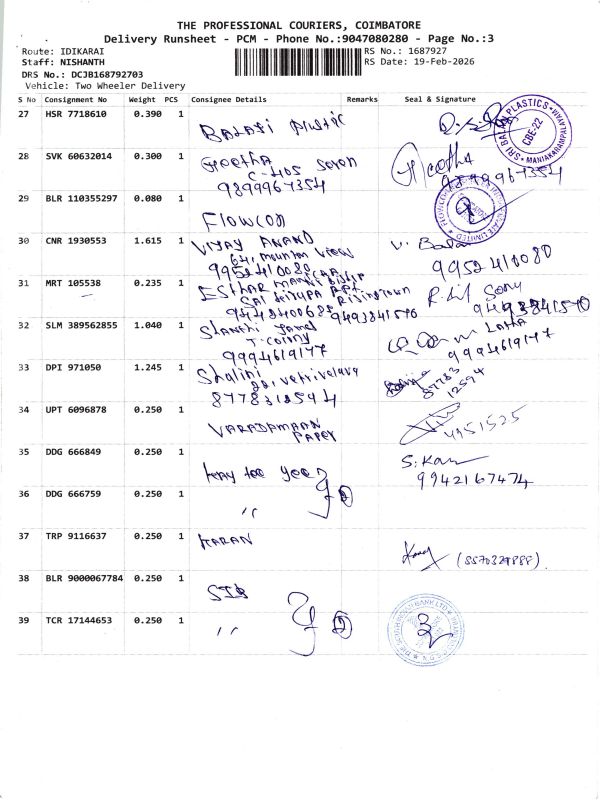 THE PROFESSIONAL COURIERS, COIMBATORE
Delivery Runsheet - PCM - Phone No.:9047080280 - Page No.:3
Route: IDIKARAI RS No.: 1687927
Staff: NISHANTH RS Date: 19-Feb-2026
DRS No.: DCJB168792703
Vehicle: Two Wheeler Delivery
S No Consignment No Weight PCS Consignee Details Remarks Seal & Signature
27 HSR 7718610 0.390 1
BALAJI Plastic
SRI BALAJI PLASTICS
CBE-22
28 SVK 60632014 0.300 1
Geetha Geetha
C-405 Seven
9899967354 9899967354
29 BLR 110355297 0.080 1
Flowcon
30 CNR 1930553 1.615 1
VIJAY ANAND
64, mountan view
9952410080 9952410080
31 MRT 105538 0.235 1
ESTHAR MARY
9493841570
32 SLM 389562855 1.040 1
Shanthi
T. colony Latha
9994619177 9994619177
33 DPI 971050 1.245 1
Shalini
vetrivelava
8778312594 87783
12594
34 UPT 6096878 0.250 1
VARADAMAAN
PAPER
4951525
35 DDG 666849 0.250 1
kay tee yee
9942167474
36 DDG 666759 0.250 1
"
37 TRP 9116637 0.250 1
KARAN
38 BLR 9000067784 0.250 1
SIB
39 TCR 17144653 0.250 1
"